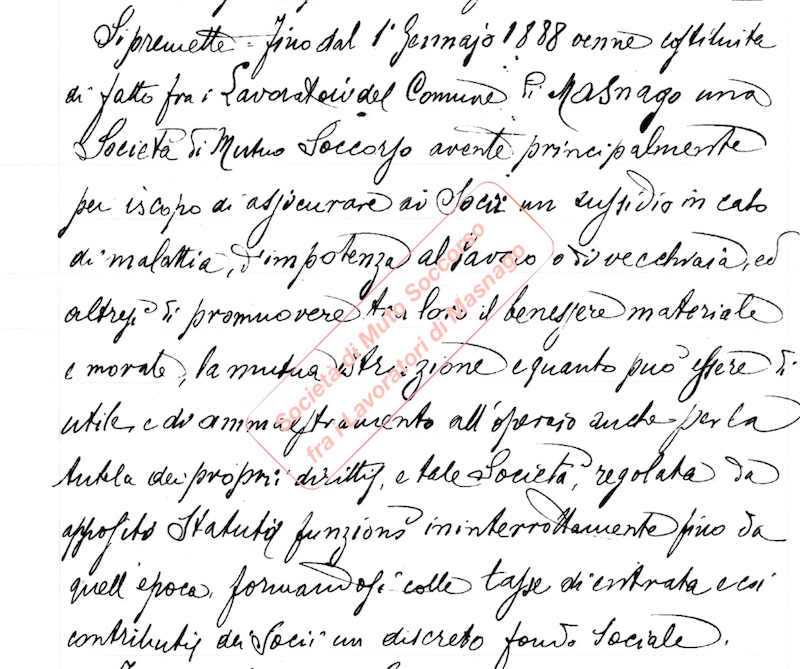 Si premette = Fino dal 1° Gennajo 1888 venne costituita
di fatto fra i Lavoratori del Comune di Masnago una
Società di Mutuo Soccorso avente principalmente
per iscopo di assicurare ai Socii un sussidio in caso
di malattia, d'impotenza al lavoro o di vecchiaia, ed
altresì di promuovere tra loro il benessere materiale
e morale, la mutua istruzione e quanto può essere di
utile, e di ammaestramento all'operaio anche per la
tutela dei proprii diritti, e tale Società, regolata da
apposito Statuto, funzionò ininterrottamente fino da
quell'epoca, formandosi colle tasse di entrata e coi
contributi dei Socii un discreto fondo sociale.
Società di Mutuo Soccorso
fra i Lavoratori di Masnago